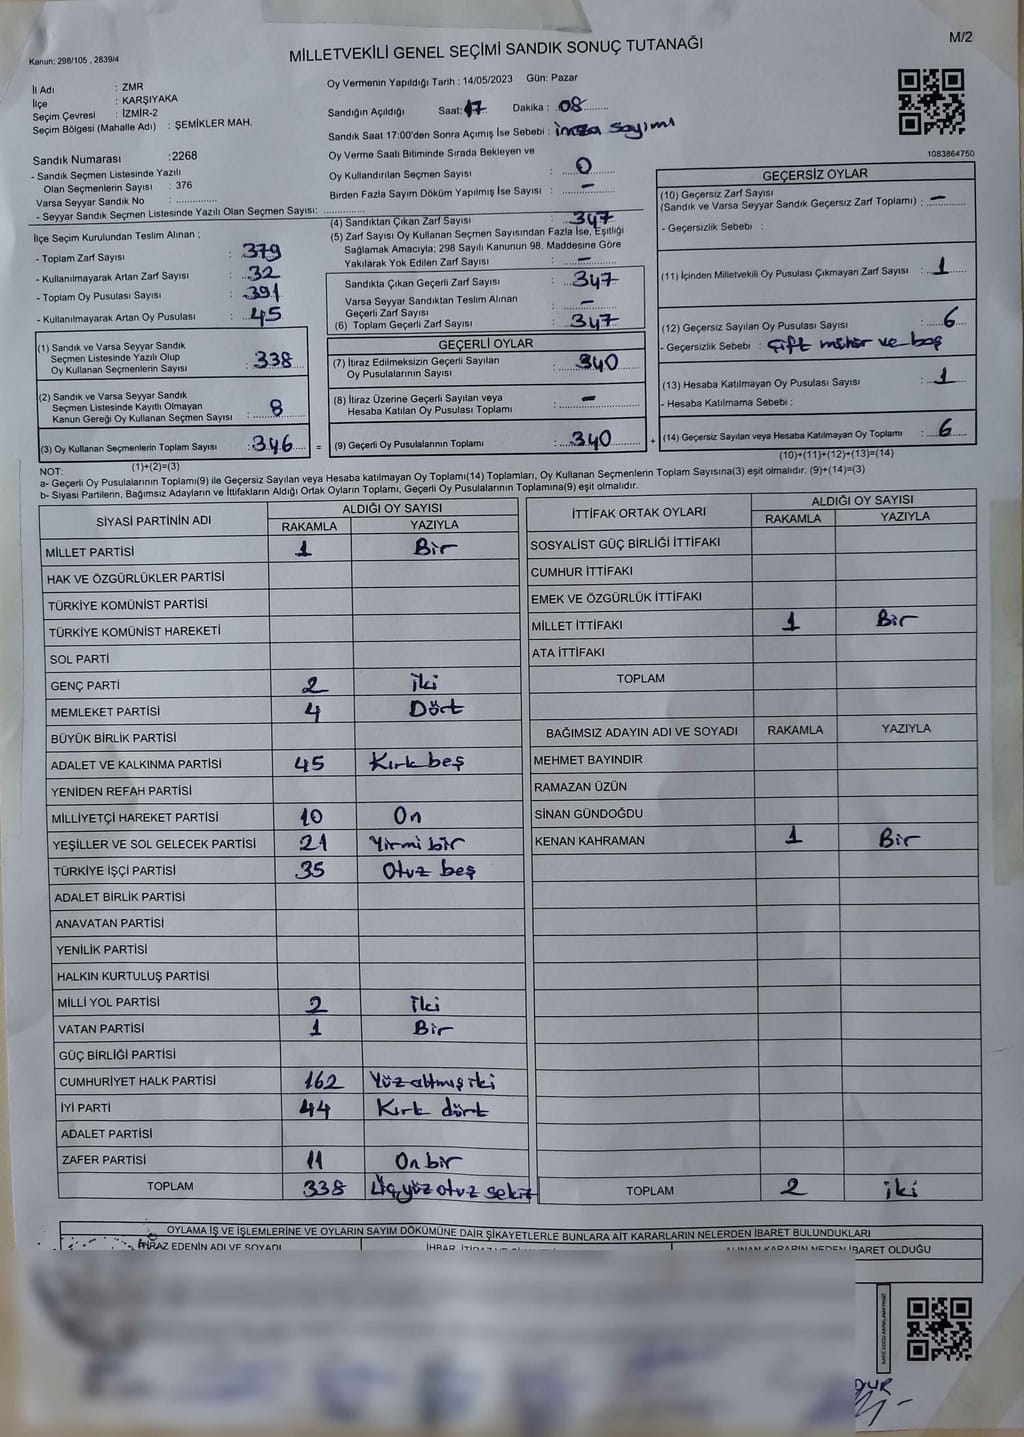 Kanun: 298/105 , 2839/4
MİLLETVEKİLİ GENEL SEÇİMİ SANDIK SONUÇ TUTANAĞI
M/2
İl Adı : ZMR
İlçe : KARŞIYAKA
Seçim Çevresi : İZMİR-2
Seçim Bölgesi (Mahalle Adı) : ŞEMİKLER MAH.
Oy Vermenin Yapıldığı Tarih : 14/05/2023 Gün: Pazar
Sandığın Açıldığı Saat: 17 Dakika : 08
Sandık Saat 17:00'den Sonra Açımış İse Sebebi : imza sayımı
Oy Verme Saati Bitiminde Sırada Bekleyen ve
Oy Kullandırılan Seçmen Sayısı : 0
Birden Fazla Sayım Döküm Yapılmış İse Sayısı : -
1083864750
Sandık Numarası :2268
- Sandık Seçmen Listesinde Yazılı
Olan Seçmenlerin Sayısı : 376
Varsa Seyyar Sandık No :
- Seyyar Sandık Seçmen Listesinde Yazılı Olan Seçmen Sayısı:
İlçe Seçim Kurulundan Teslim Alınan ;
- Toplam Zarf Sayısı : 379
- Kullanılmayarak Artan Zarf Sayısı : 32
- Toplam Oy Pusulası Sayısı : 391
- Kullanılmayarak Artan Oy Pusulası : 45
(1) Sandık ve Varsa Seyyar Sandık
Seçmen Listesinde Yazılı Olup
Oy Kullanan Seçmenlerin Sayısı : 338
(2) Sandık ve Varsa Seyyar Sandık
Seçmen Listesinde Kayıtlı Olmayan
Kanun Gereği Oy Kullanan Seçmen Sayısı : 8
(3) Oy Kullanan Seçmenlerin Toplam Sayısı : 346 =
(1)+(2)=(3)
(4) Sandıktan Çıkan Zarf Sayısı : 347
(5) Zarf Sayısı Oy Kullanan Seçmen Sayısından Fazla İse, Eşitliği
Sağlamak Amacıyla; 298 Sayılı Kanunun 98. Maddesine Göre
Yakılarak Yok Edilen Zarf Sayısı : -
Sandıkta Çıkan Geçerli Zarf Sayısı : 347
Varsa Seyyar Sandıktan Teslim Alınan
Geçerli Zarf Sayısı : -
(6) Toplam Geçerli Zarf Sayısı : 347
GEÇERLİ OYLAR
(7) İtiraz Edilmeksizin Geçerli Sayılan
Oy Pusulalarının Sayısı : 340
(8) İtiraz Üzerine Geçerli Sayılan veya
Hesaba Katılan Oy Pusulası Toplamı : -
(9) Geçerli Oy Pusulalarının Toplamı : 340 +
GEÇERSİZ OYLAR
(10) Geçersiz Zarf Sayısı
(Sandık ve Varsa Seyyar Sandık Geçersiz Zarf Toplamı) : -
- Geçersizlik Sebebi :
(11) İçinden Milletvekili Oy Pusulası Çıkmayan Zarf Sayısı : 1
(12) Geçersiz Sayılan Oy Pusulası Sayısı : 6
- Geçersizlik Sebebi : çift mühür ve boş
(13) Hesaba Katılmayan Oy Pusulası Sayısı : 1
- Hesaba Katılmama Sebebi :
(14) Geçersiz Sayılan veya Hesaba Katılmayan Oy Toplamı : 6
(10)+(11)+(12)+(13)=(14)
NOT:
a- Geçerli Oy Pusulalarının Toplamı(9) ile Geçersiz Sayılan veya Hesaba katılmayan Oy Toplamı(14) Toplamları, Oy Kullanan Seçmenlerin Toplam Sayısına(3) eşit olmalıdır. (9)+(14)=(3)
b- Siyasi Partilerin, Bağımsız Adayların ve İttifakların Aldığı Ortak Oyların Toplamı, Geçerli Oy Pusulalarının Toplamına(9) eşit olmalıdır.
SİYASİ PARTİNİN ADI ALDIĞI OY SAYISI
RAKAMLA YAZIYLA
MİLLET PARTİSİ 1 Bir
HAK VE ÖZGÜRLÜKLER PARTİSİ
TÜRKİYE KOMÜNİST PARTİSİ
TÜRKİYE KOMÜNİST HAREKETİ
SOL PARTİ
GENÇ PARTİ 2 İki
MEMLEKET PARTİSİ 4 Dört
BÜYÜK BİRLİK PARTİSİ
ADALET VE KALKINMA PARTİSİ 45 Kırk beş
YENİDEN REFAH PARTİSİ
MİLLİYETÇİ HAREKET PARTİSİ 10 On
YEŞİLLER VE SOL GELECEK PARTİSİ 21 Yirmi bir
TÜRKİYE İŞÇİ PARTİSİ 35 Otuz beş
ADALET BİRLİK PARTİSİ
ANAVATAN PARTİSİ
YENİLİK PARTİSİ
HALKIN KURTULUŞ PARTİSİ
MİLLİ YOL PARTİSİ 2 İki
VATAN PARTİSİ 1 Bir
GÜÇ BİRLİĞİ PARTİSİ
CUMHURİYET HALK PARTİSİ 162 Yüz altmış iki
İYİ PARTİ 44 Kırk dört
ADALET PARTİSİ
ZAFER PARTİSİ 11 On bir
TOPLAM 338 Üç yüz otuz sekiz
İTTİFAK ORTAK OYLARI ALDIĞI OY SAYISI
RAKAMLA YAZIYLA
SOSYALİST GÜÇ BİRLİĞİ İTTİFAKI
CUMHUR İTTİFAKI
EMEK VE ÖZGÜRLÜK İTTİFAKI
MİLLET İTTİFAKI 1 Bir
ATA İTTİFAKI
TOPLAM
BAĞIMSIZ ADAYIN ADI VE SOYADI RAKAMLA YAZIYLA
MEHMET BAYINDIR
RAMAZAN ÜZÜN
SİNAN GÜNDOĞDU
KENAN KAHRAMAN 1 Bir
TOPLAM 2 iki
OYLAMA İŞ VE İŞLEMLERİNE VE OYLARIN SAYIM DÖKÜMÜNE DAİR ŞİKAYETLERLE BUNLARA AİT KARARLARIN NELERDEN İBARET BULUNDUKLARI
İTİRAZ EDENİN ADI VE SOYADI
ALINAN KARARIN NEDEN İBARET OLDUĞU